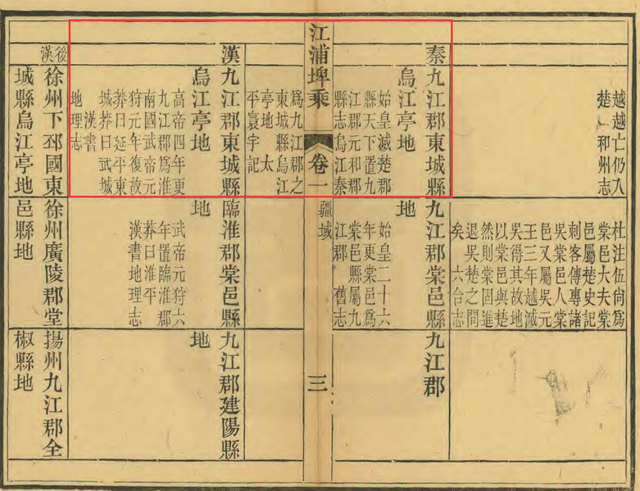 越越亡仍入
楚　和州志
杜注伍尚爲
棠邑大夫棠
邑屬楚史記
刺客傳專諸
吳棠邑人棠
邑又屬吳元
王三年越滅
吳得其故地
以棠邑與楚
然則棠固進
退吳楚之間
矣　六合志
秦九江郡東城縣
烏江亭地
始皇滅楚郡
縣天下置九
江郡元和郡
縣志烏江秦
爲九江郡之
東城縣烏江
亭地　太
平寰宇記
九江郡棠邑縣
地
始皇二十六
年更棠邑爲
棠邑縣屬九
江郡　舊志
九江郡
江浦埤乘　卷一　疆域　三
漢九江郡東城縣
烏江亭地
高帝四年更
九江郡爲淮
南國武帝元
狩元年復故
莽曰延平東
城莽曰武城
漢書
地理志
臨淮郡棠邑縣
地
武帝元狩六
年置臨淮郡
莽曰淮平
漢書地理志
九江郡建陽縣
地
後漢
徐州下邳國東
城縣烏江亭地
徐州廣陵郡堂
邑縣地
揚州九江郡全
椒縣地